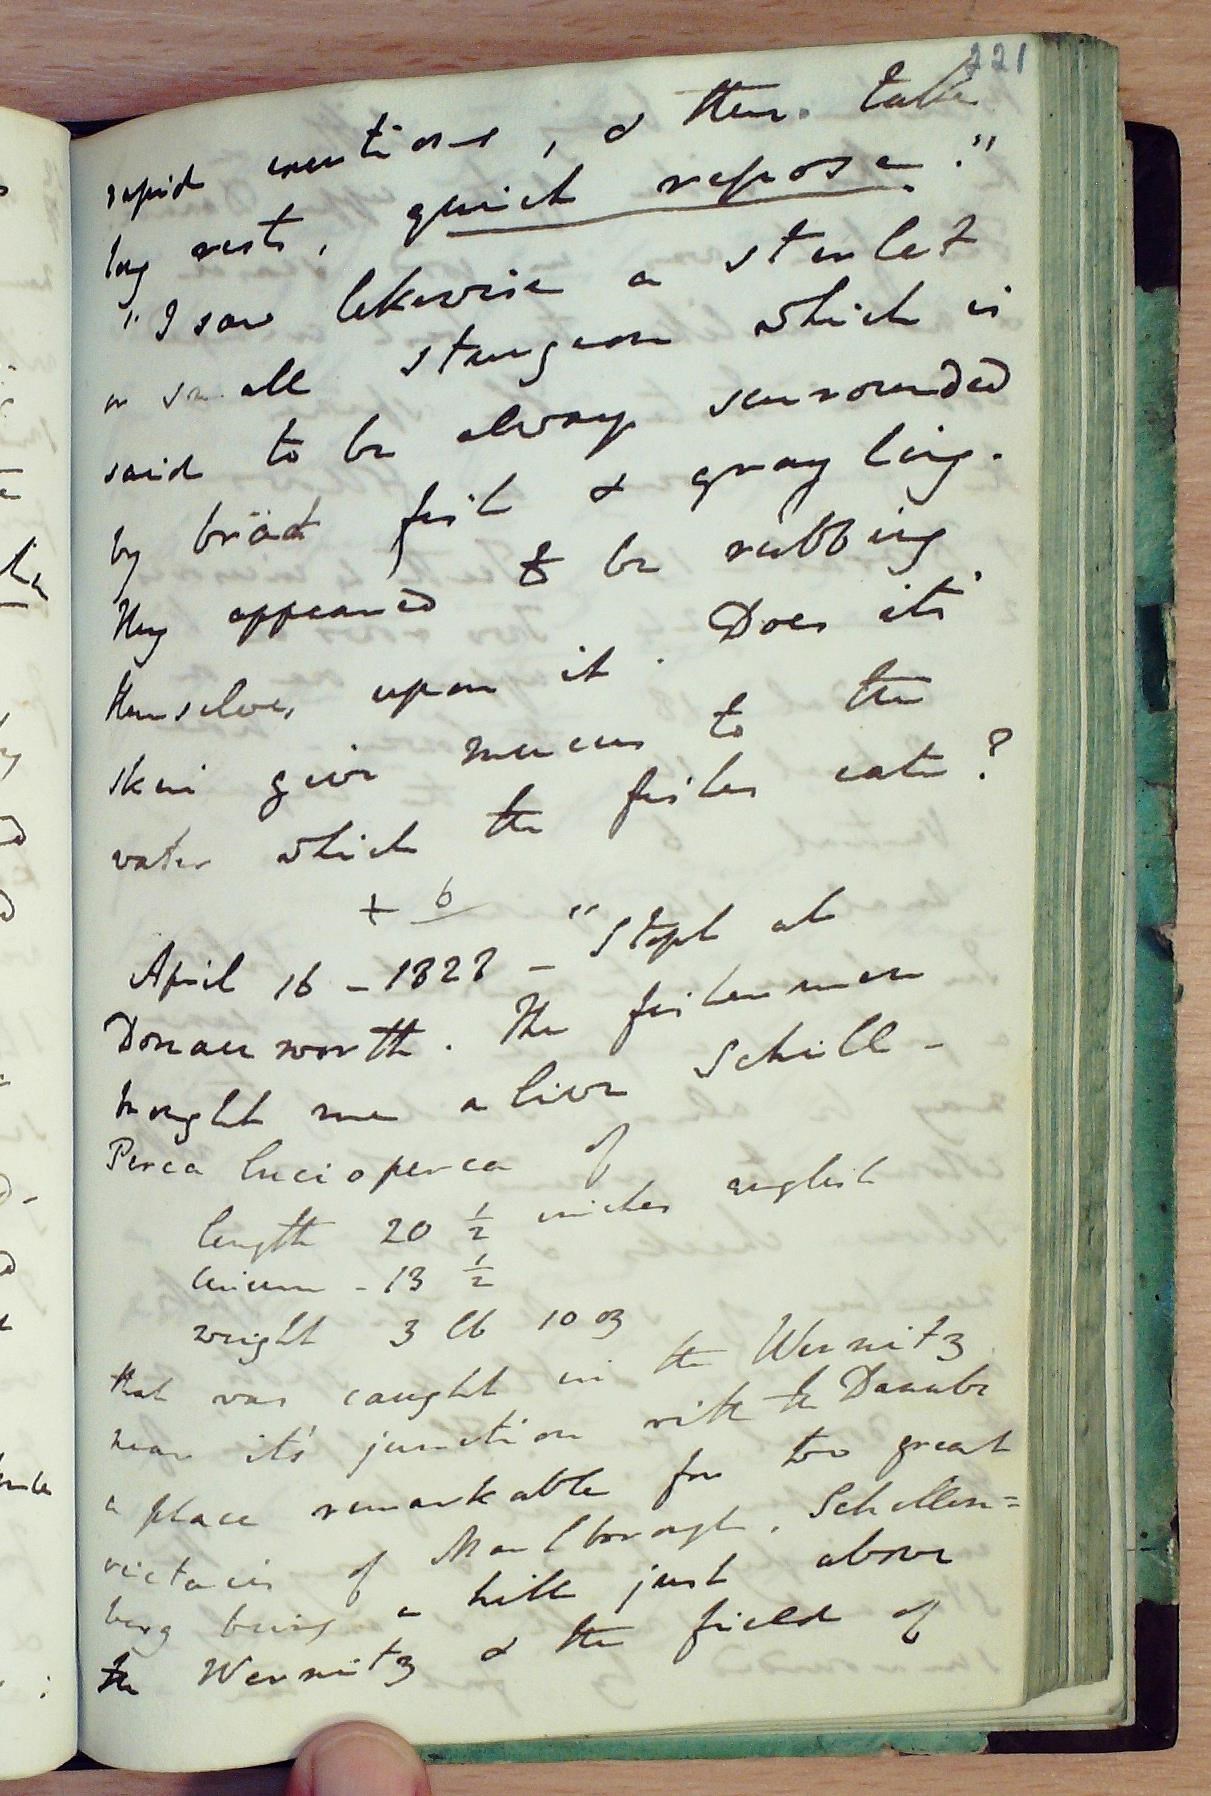 221
rapid exertions, & then. take
long rests, quick repose."
"I saw likewise a sterlet
or small sturgeon which is
said to be always surrounded
by broad fish & grayling.
they appeared to be rubbing
themselves upon it. Does its
skin give mucus to the
water which the fishes eat?
+ 6
April 16 - 1828 - "Stopt at
Donauworth. The fishermen
brought me a live Schill -
Perca lucioperca of
length 20 ½ inches english
- 13 ½
weight 3 lb 10 oz
that was caught in the Wernitz
near it's junction with the Danube
a place remarkable for two great
victories of Marlborough. Schellen=
berg being a hill just above
the Wernitz & the field of